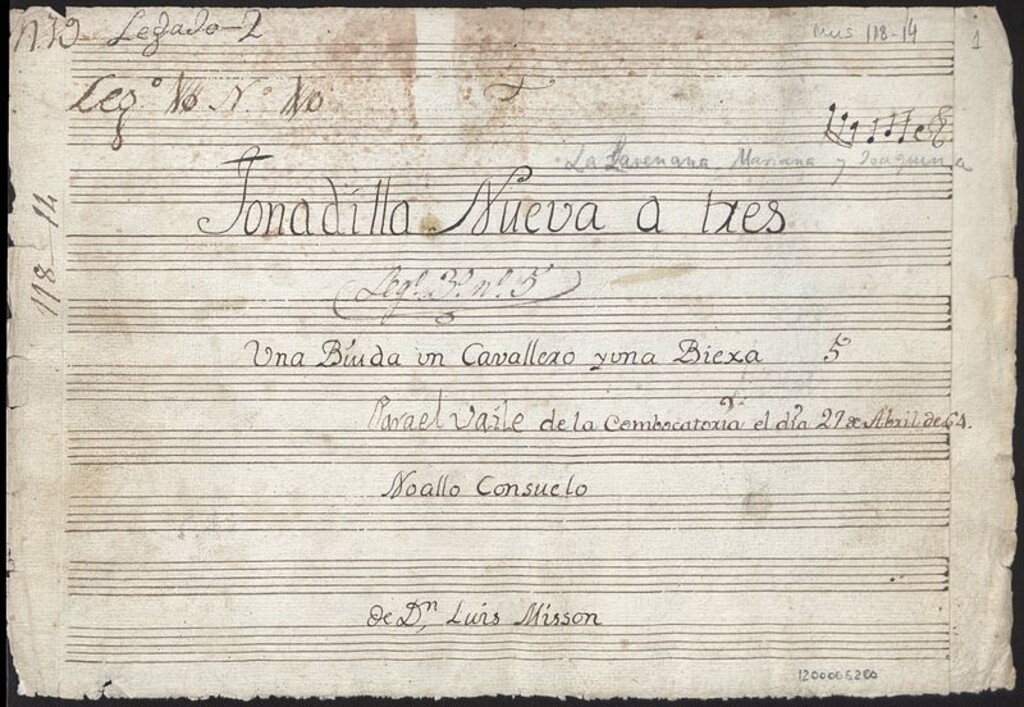 Legado-2
Mus 118-14
1
Leg.º Nº
La Mariana y Joaquina
Tonadilla Nueva a tres
118-14
Legº. 3º. nº. 5º
Una Biuda un Cavallero y una Biexa 5
Para el Vaile de la Combocatoria el día 27 de Abril de 64.
No allo Consuelo
de Dn. Luis Misson
1200005200